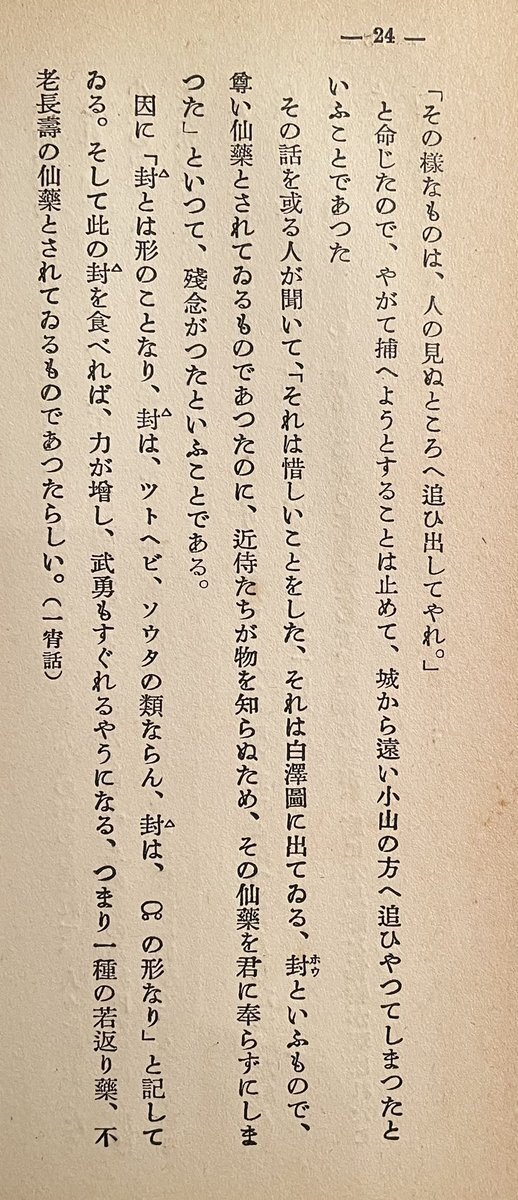 — 24 —
「その樣なものは、人の見ぬところへ追ひ出してやれ。」
と命じたので、やがて捕へようとすることは止めて、城から遠い小山の方へ追ひやつてしまつたと
いふことであつた
その話を或る人が聞いて、「それは惜しいことをした、それは白澤圖に出てゐる、封ホウといふもので、
尊い仙藥とされてゐるものであつたのに、近侍たちが物を知らぬため、その仙藥を君に奉らずにしま
つた」といつて、殘念がつたといふことである。
因に「封とは形のことなり、封は、ツトヘビ、ソウタの類ならん、封は、の形なり」と記して
ゐる。そして此の封を食べれば、力が增し、武勇もすぐれるやうになる、つまり一種の若返り藥、不
老長壽の仙藥とされてゐるものであつたらしい。（一宵話）